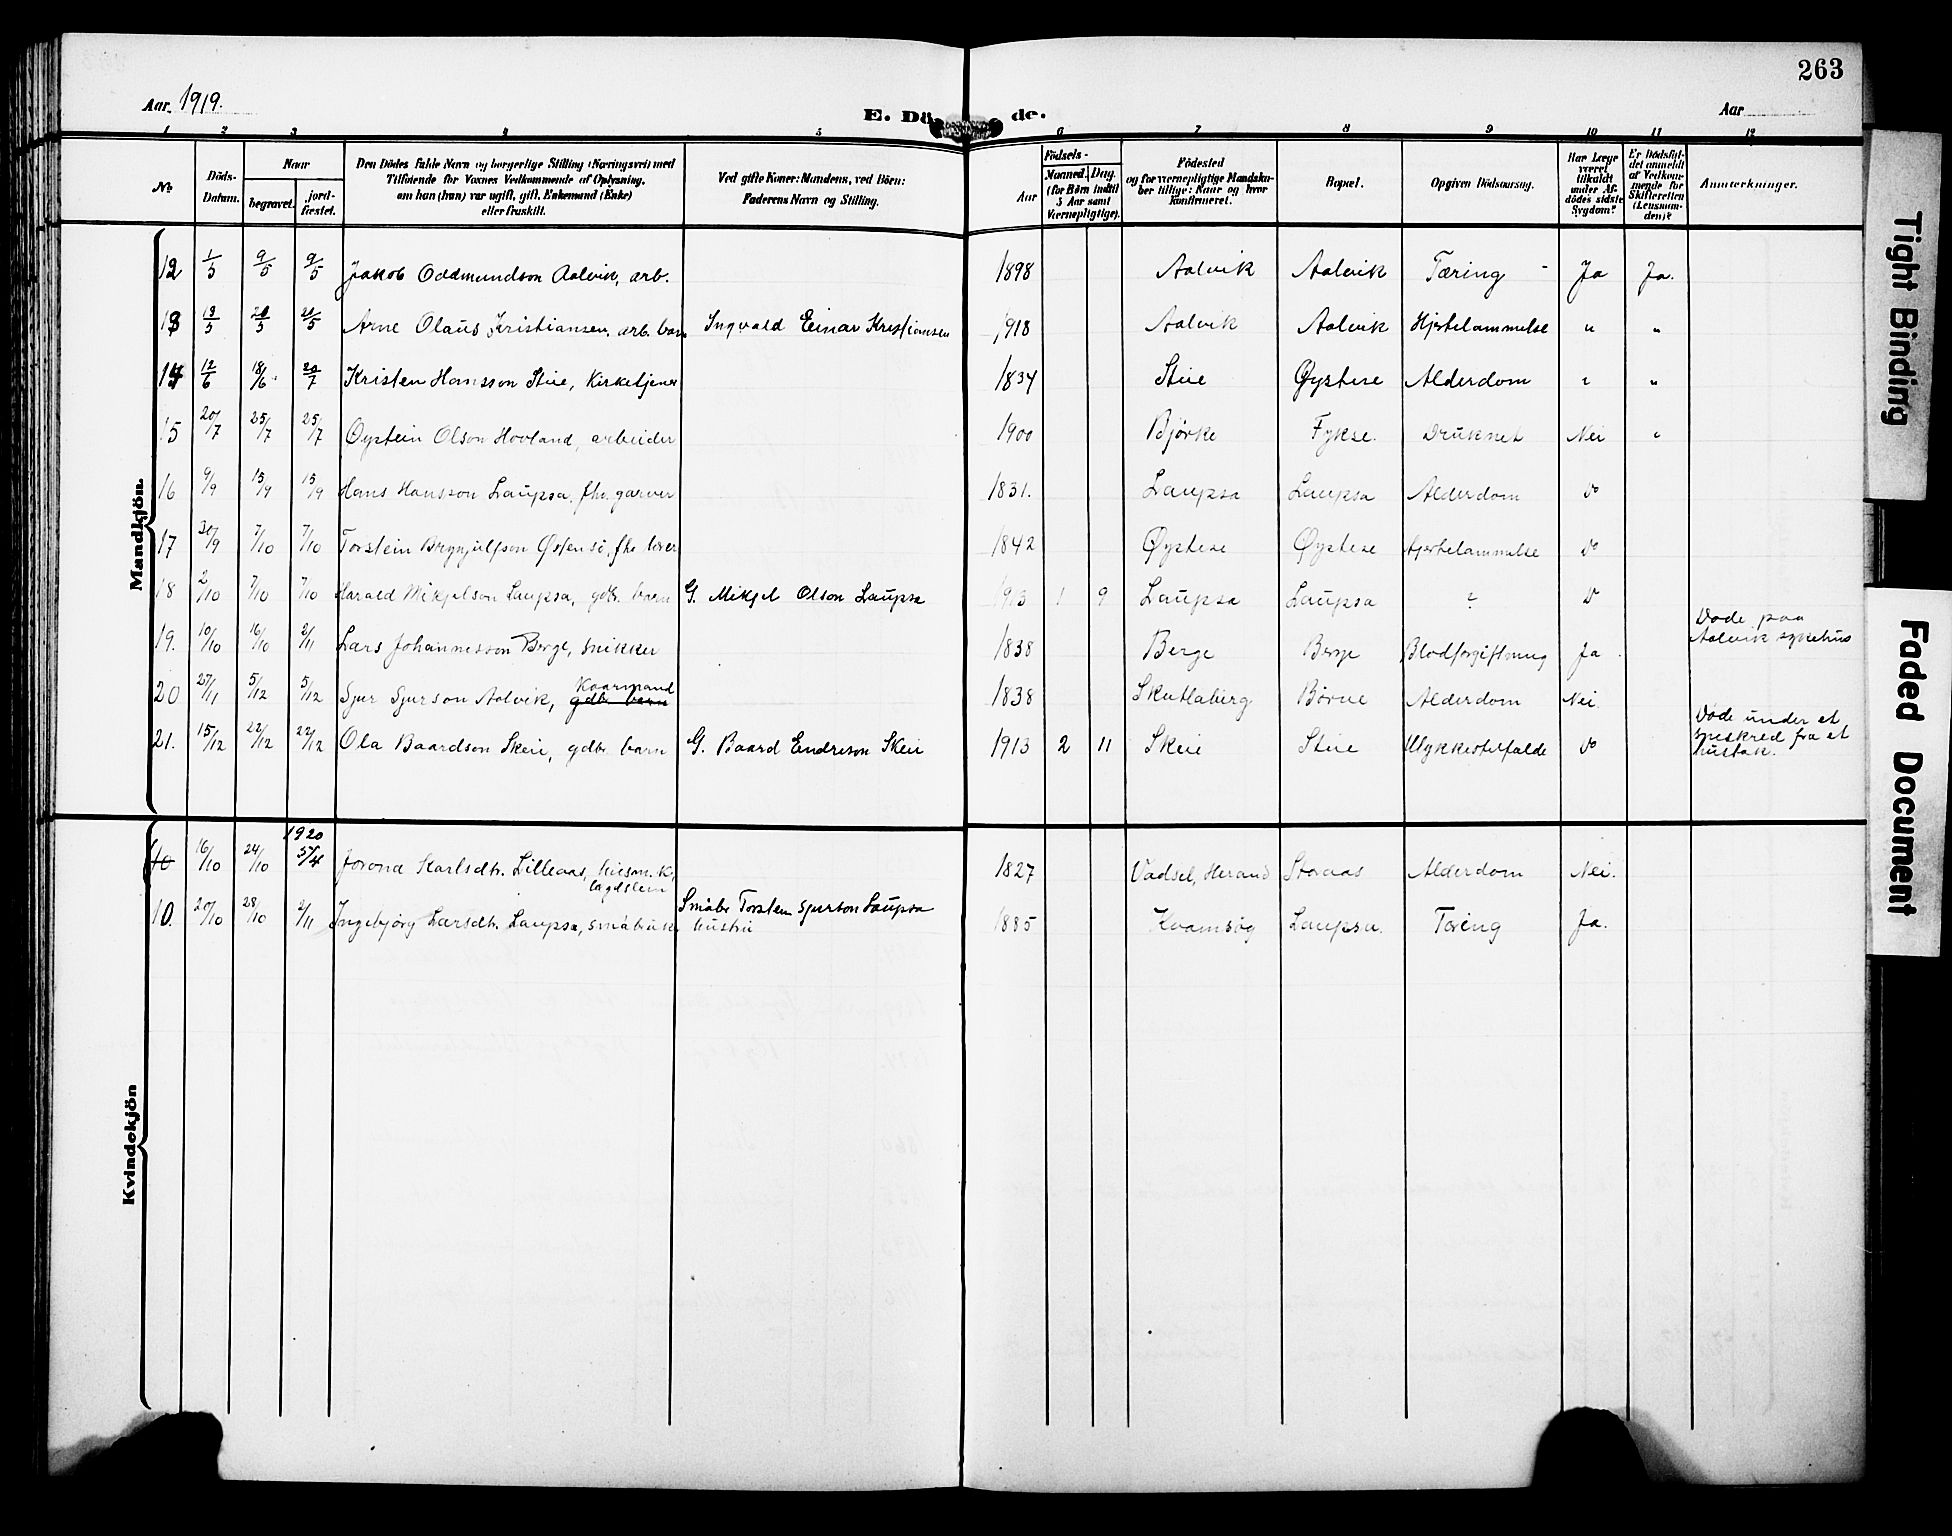 263
Aar 1919.
E. Dö de.
Aar
1 2 3 4 5 6 7 8 9 10 11 12
No Döds-Datum. Naar begravet. jord-fæstet. Den Dödes fulde Navn og borgerlige Stilling (Næringsvei) med Tilföiende for Voxnes Vedkommende af Oplysning, om han (hun) var ugift, gift, Enkemand (Enke) eller fraskilt. Ved gifte Koner: Mandens, ved Börn: Faderens Navn og Stilling. Födsels- Aar Maaned. Dag. (for Börn indtil 5 Aar samt Værnepligtige). Födested og for værnepligtige Mandskaber tillige: Naar og hvor Konfirmeret. Bopæl. Opgiven Dödsaarsag. Har Læge været tilkaldt under Afdödes sidste Sygdom? Er Dödsfaldet anmeldt af Vedkommende for Skifteretten (Lensmanden)? Anmærkninger.
Mandkjön.
12 1/5 9/5 9/5 Jakob Oddmundson Aalvik, arb. 1898 Aalvik Aalvik Tæring Ja Ja.
13 13/5 20/5 20/5 Arne Olaus Kristiansen, arb. barn Ingvald Einar Kristiansen 1918 Aalvik Aalvik Hjertelammelse " "
14 12/6 18/6 20/7 Kristen Hansson Steie, Kirketjener 1834 Steie Øystese Alderdom " "
15 20/7 25/7 25/7 Øystein Olson Hovland, arbeider 1900 Bjørke Fykse. Druknet Nei "
16 9/9 15/9 15/9 Hans Hansson Laupsa, fhv. garver 1831. Laupsa Laupsa Alderdom Do
17 30/9 7/10 7/10 Torstein Brynjulfson Østensö, fhv lærer 1842 Øystese Øystese Hjertelammelse Do
18 2/10 7/10 7/10 Harald Mikjelson Laupsa, gdbr. barn G. Mikjel Olson Laupsa 1913 1 9 Laupsa Laupsa ? Do
19. 10/10 16/10 2/11 Lars Johannesson Berge, snikker 1838 Berge Berge Blodforgiftning Ja Døde paa Aalvik sykehus
20 27/11 5/12 5/12 Sjur Sjurson Aalvik, gdbr. barn Kaarmand 1838 Skutlaberg Børve Alderdom Nei.
21. 15/12 22/12 22/12 Ola Baardson Skeie, gdbr. barn G. Baard Endreson Skeie 1913 2 11 Skeie Steie Ulykkestilfælde Do Døde under et sneskred fra et hustak.
Kvindekjön
10 16/10 24/10 1920 5/4 Jorond Karlsdtr. Lilleaas, husm. K, lægdslem 1827 Vadsel, Herand Storaas Alderdom Nei.
10. 20/10 28/10 2/11 Ingebjörg Larsdtr. Laupsa, småbruk. Småbr. Torstein Sjurson Laupsa hustru 1885 Kvamsøy Laupsa. Tæring Ja.
Tight Binding
Faded Document